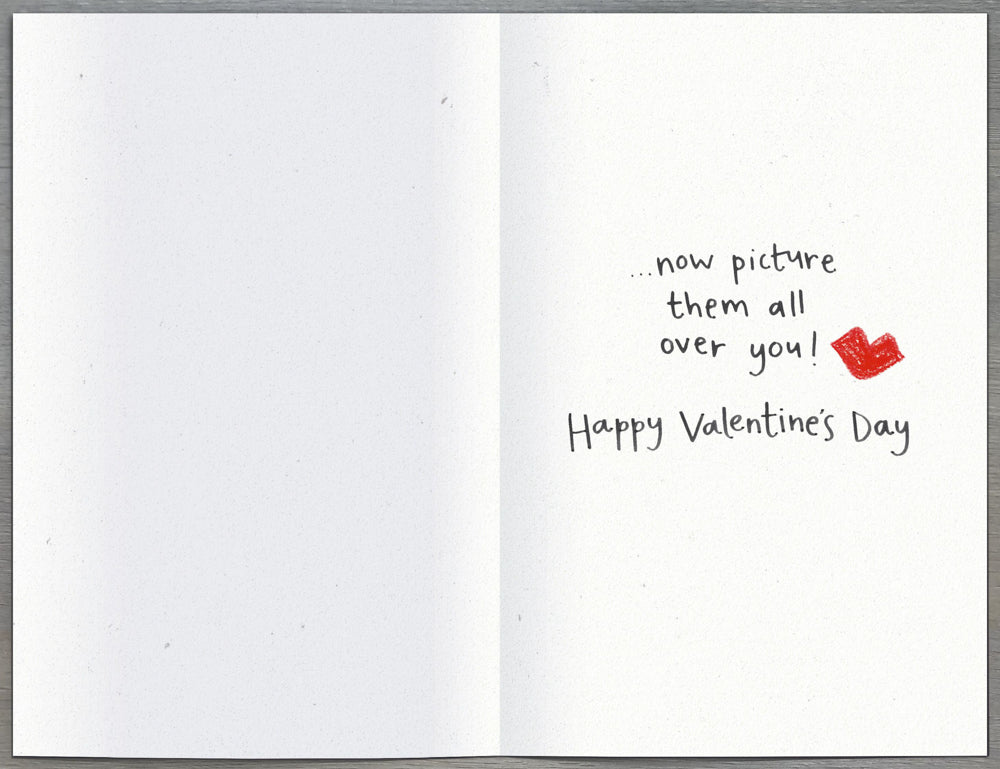 ...now picture
them all
over you!
Happy Valentine's Day